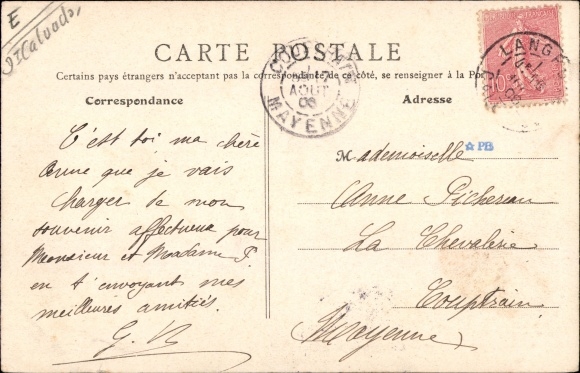 E
Calvados
CARTE POSTALE
Certains pays étrangers n'acceptant pas la correspondance de ce côté, se renseigner à la Poste
Correspondance
Adresse
COUPTRAIN
AOUT
MAYENNE
LANG
10
C'est toi ma chère
Anne que je vais
charger de mon
souvenir affectueux pour
Monsieur et Madame P.
en t'envoyant mes
meilleures amitiés.
G. R
☆ PB
Mademoiselle
Anne Pichereau
La Chevalerie
Couptrain
Mayenne